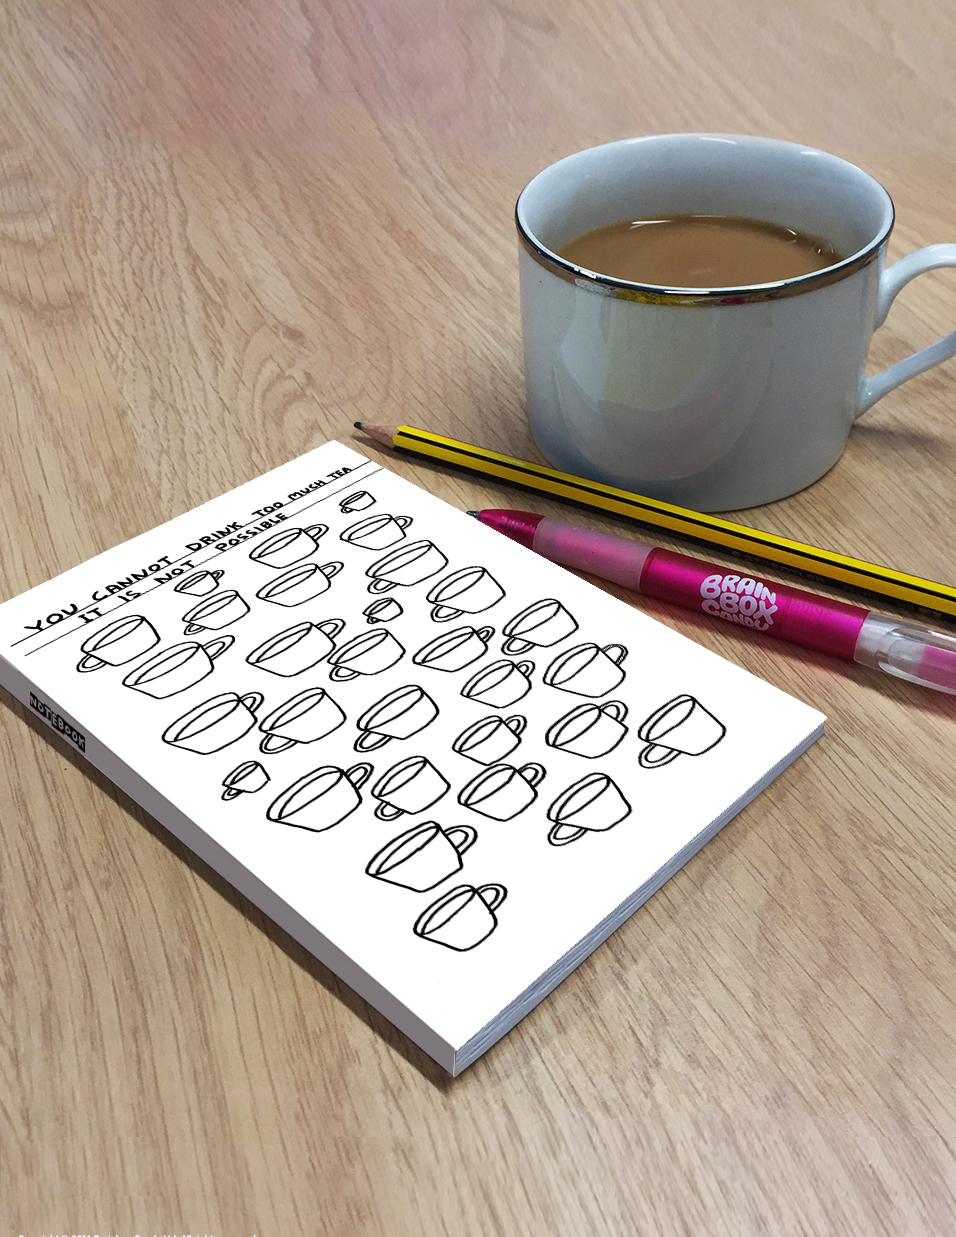 YOU CANNOT DRINK TOO MUCH TEA
IT IS NOT POSSIBLE
NOTEBOOK
BRAIN
BOX
CANDY